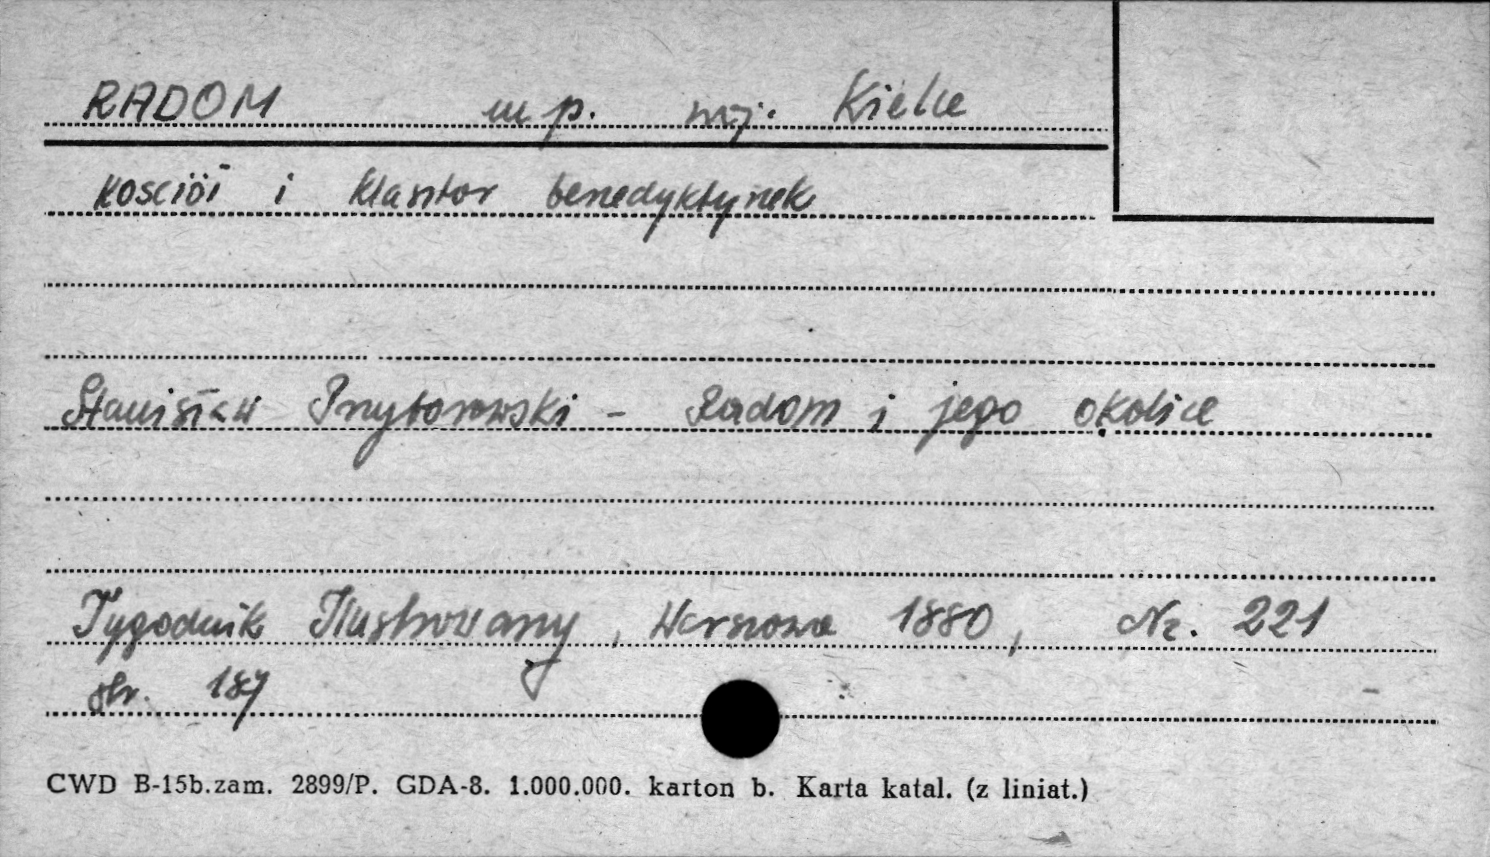 RADOM m p. woj. Kielce
kościół i klasztor benedyktynek
Stanisław Przyborowski - Radom i jego okolice
Tygodnik Ilustrowany, Warszawa 1880, Nr. 221
str. 187
CWD B-15b.zam. 2899/P. GDA-8. 1.000.000. karton b. Karta katal. (z liniat.)